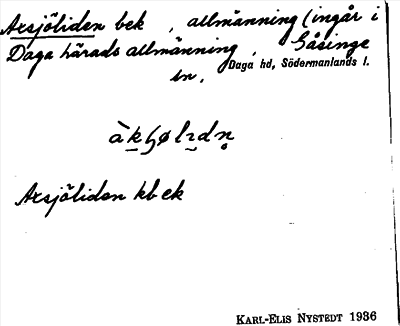 Axsjöliden bek , allmänning (ingår i
Daga härads allmänning , Gåsinge
sn, Daga hd, Södermanlands l.
Axsjöliden kb ek
KARL-ELIS NYSTEDT 1936